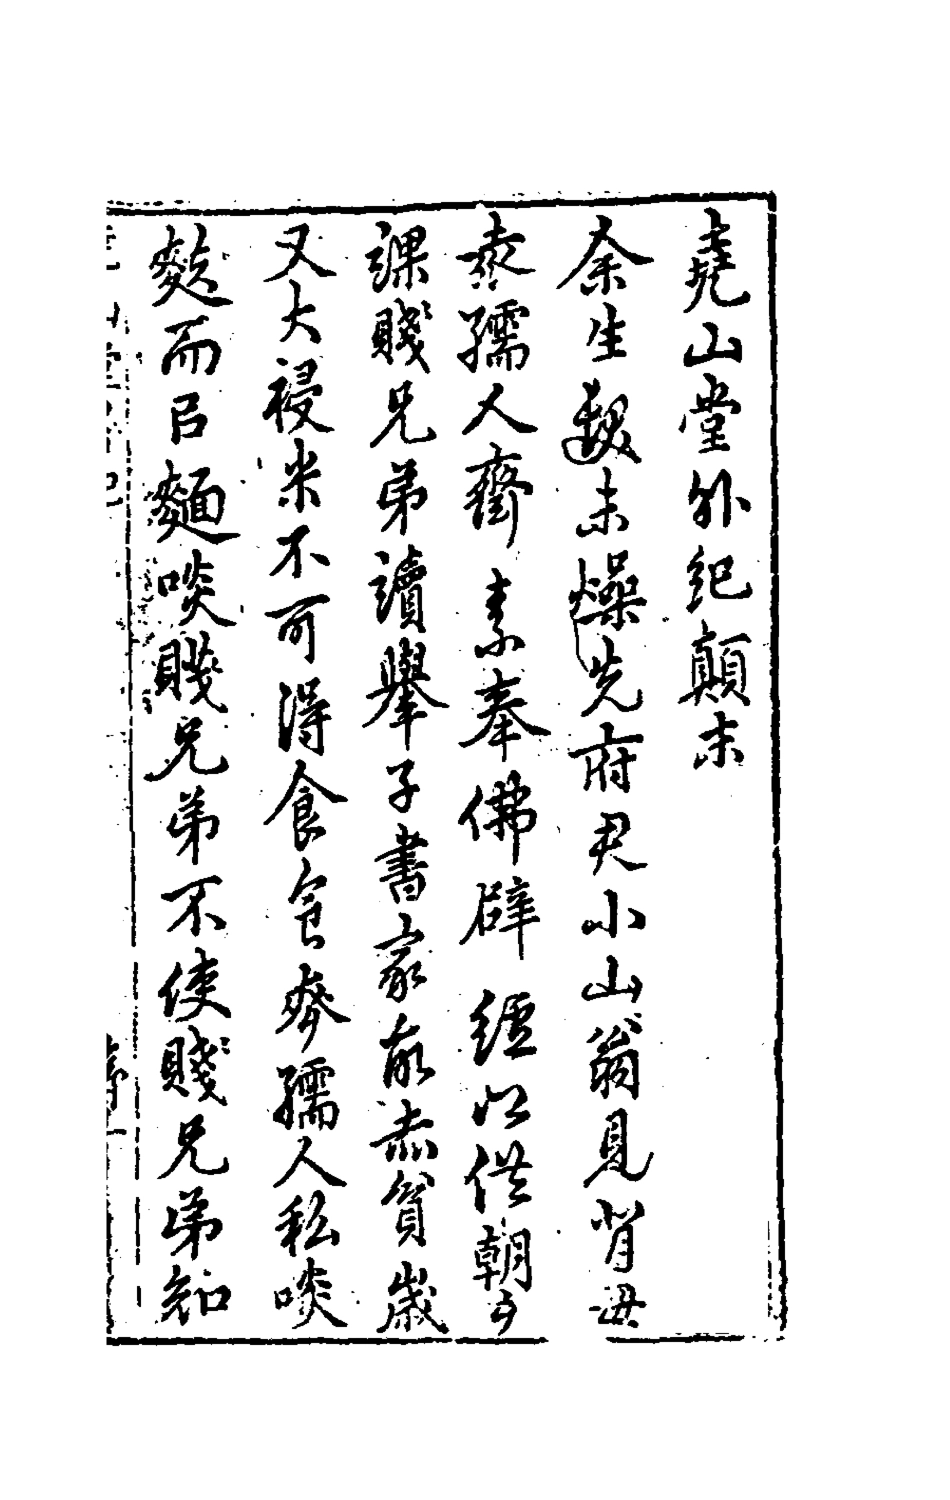 堯山堂外紀顛末
余生齠未燥先府尹小山翁見背母
袁孺人齋素奉佛辟纑以供朝夕
課賤兄弟讀舉子書家故赤貧歲
又大祲米不可得食食麥孺人私啖
麩而以麵啖賤兄弟不使賤兄弟知